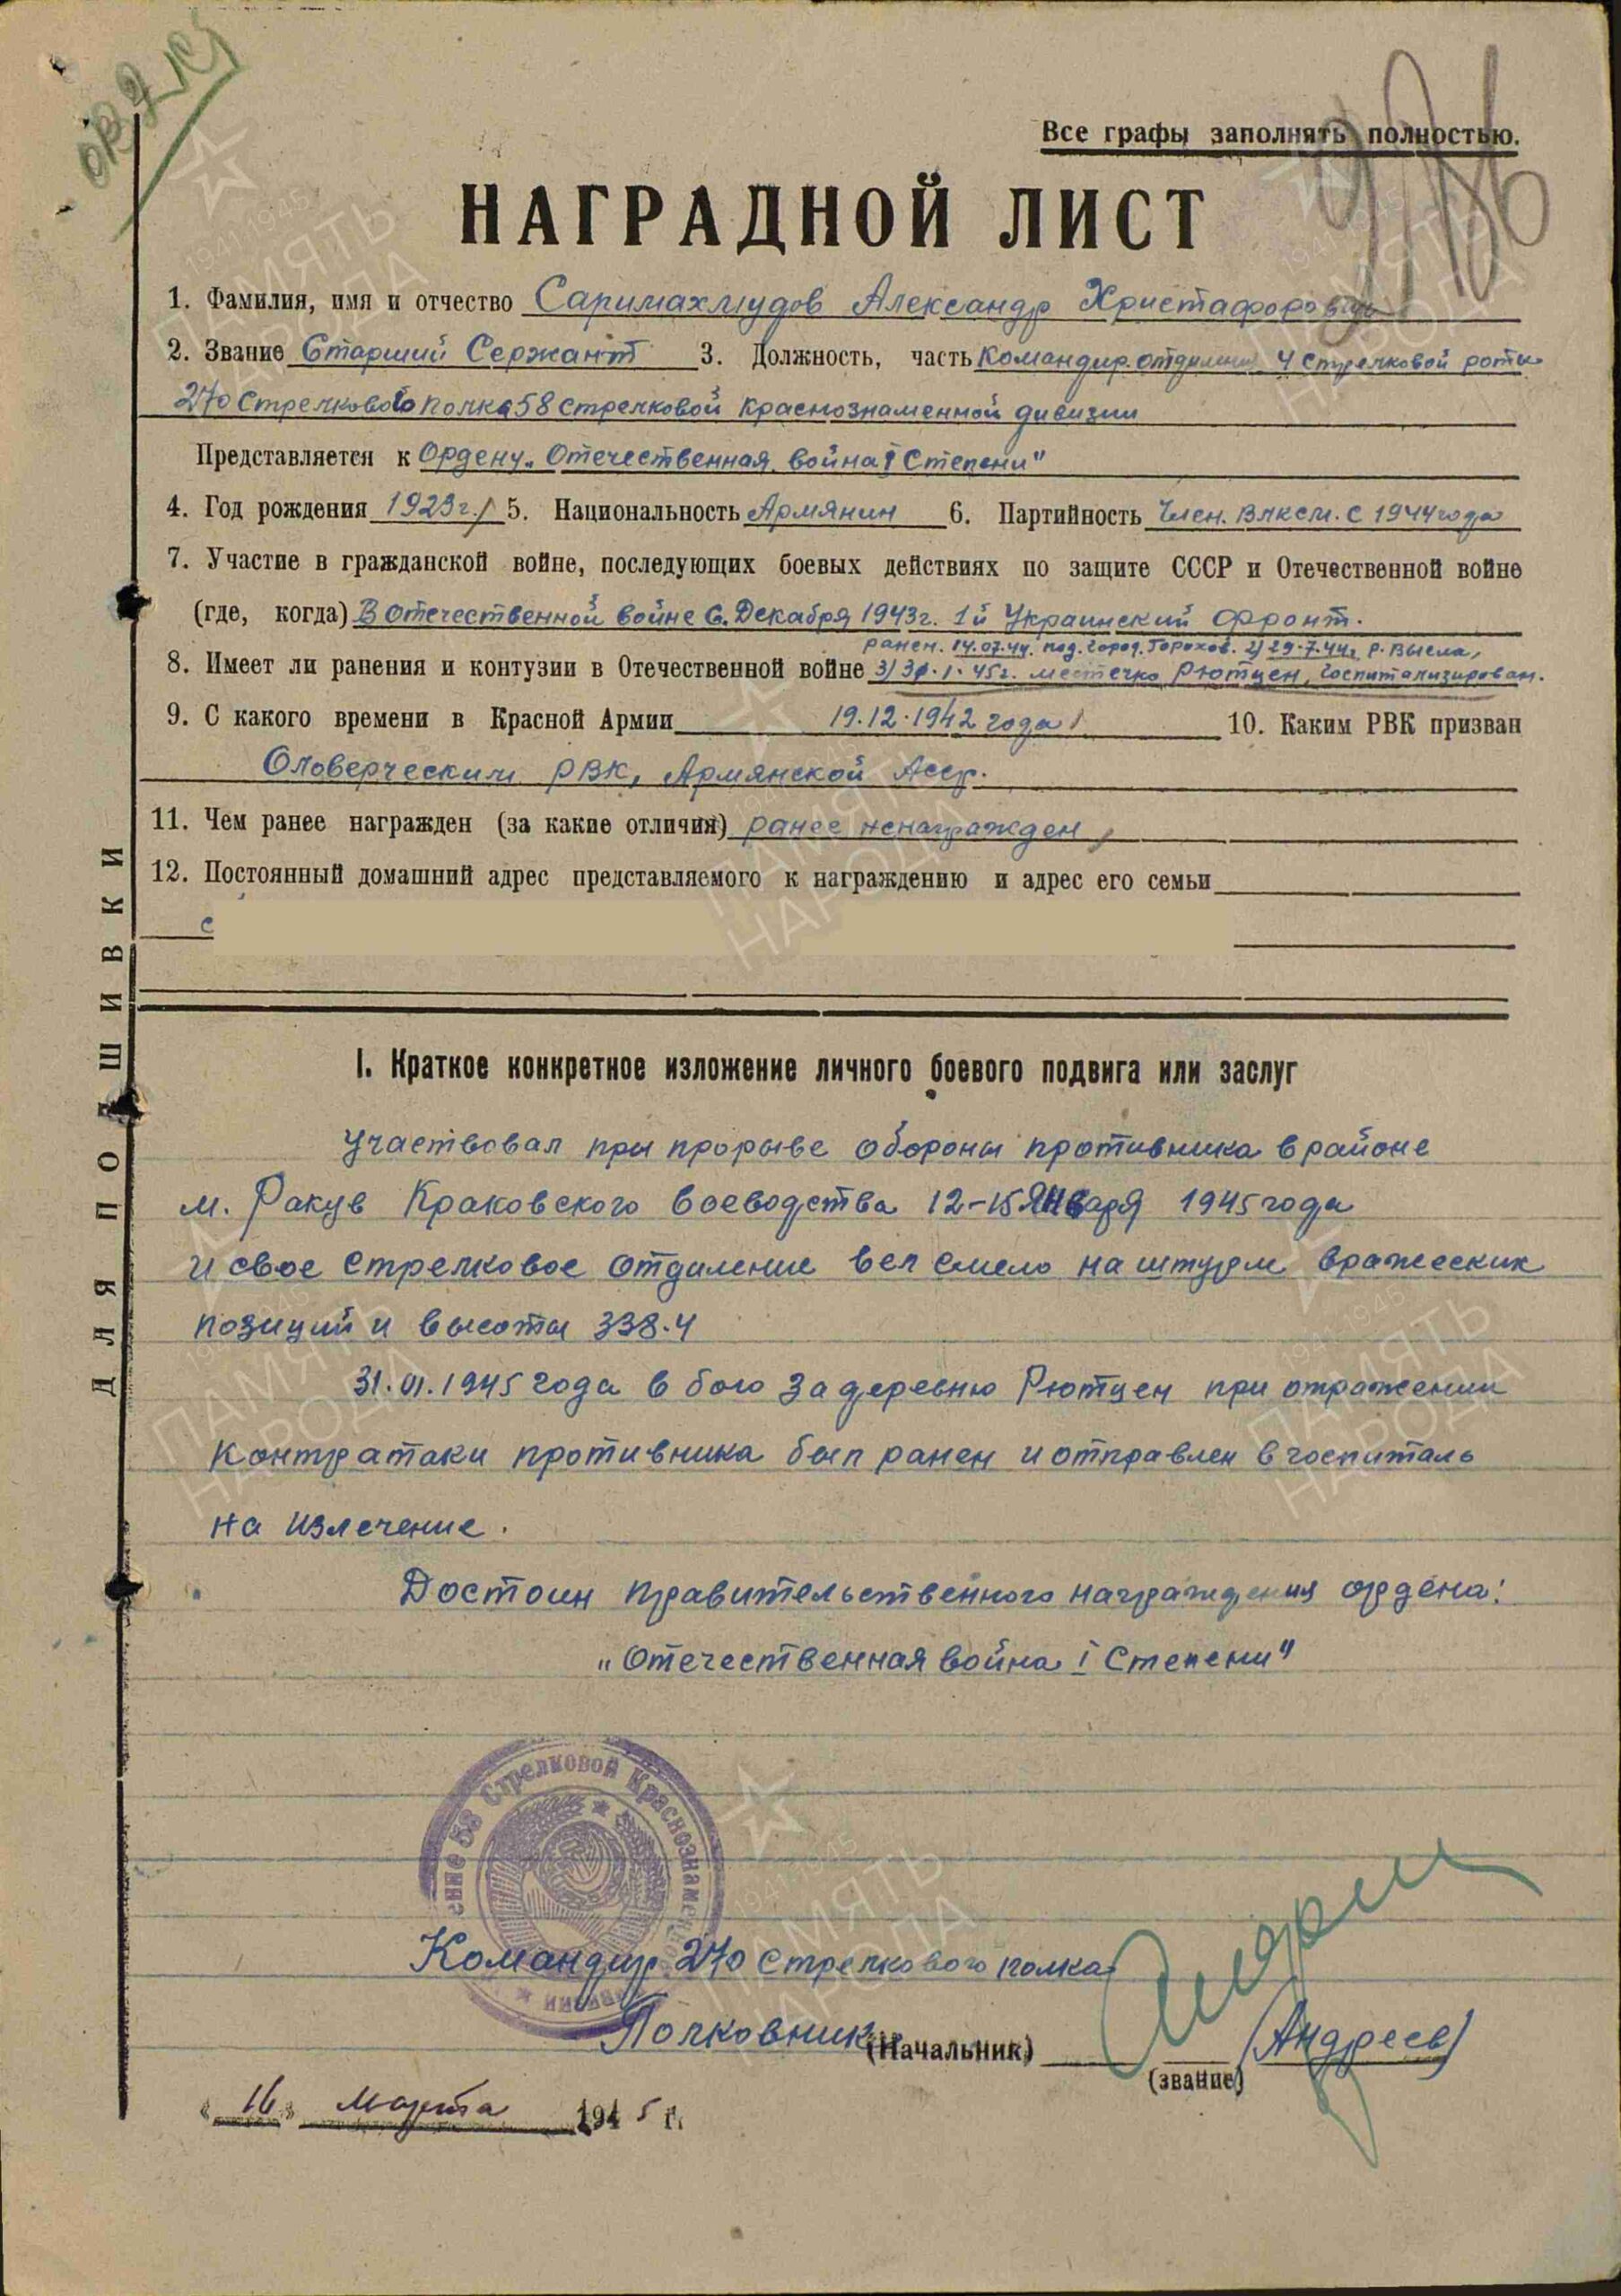 Все графы заполнять полностью.
НАГРАДНОЙ ЛИСТ
1. Фамилия, имя и отчество Саримахмудов Александр Христафорович
2. Звание Старший Сержант 3. Должность, часть Командир отделения 4 стрелковой роты
270 Стрелкового полка 58 стрелковой Краснознаменной дивизии
Представляется к Ордену „Отечественная война I Степени"
4. Год рождения 1923г. 5. Национальность Армянин 6. Партийность Член. ВЛКСМ. с 1944 года
7. Участие в гражданской войне, последующих боевых действиях по защите СССР и Отечественной войне
(где, когда) В отечественной войне с. Декабря 1943г. 1й Украинский Фронт.
ранен. 14.07.44. под. город. Горохов. 2) 29.7.44г р. Висла,
8. Имеет ли ранения и контузии в Отечественной войне 3) 31.1.45г. местечко Рютцен, госпитализирован.
9. С какого времени в Красной Армии 19.12.1942 года 10. Каким РВК призван
РВК, Армянской Асср.
11. Чем ранее награжден (за какие отличия) ранее ненагражден,
12. Постоянный домашний адрес представляемого к награждению и адрес его семьи
с
ДЛЯ ПОДШИВКИ
I. Краткое конкретное изложение личного боевого подвига или заслуг
Участвовал при прорыве обороны противника в районе
м. Ракув Краковского воеводства 12-15 Января 1945 года
и свое стрелковое отделение вел смело на штурм вражеских
позиций и высоты 338.4
31.01.1945 года в бою за деревню Рютцен при отражении
контратаки противника был ранен и отправлен в госпиталь
на излечение.
Достоин правительственного награждения ордена:
„Отечественная война I Степени"
58 Стрелковой Краснознамен
Командир 270 стрелкового полка
Полковник (Начальник) (Андреев)
(звание)
„16" марта 1945 г.
ПАМЯТЬ НАРОДА
1941-1945